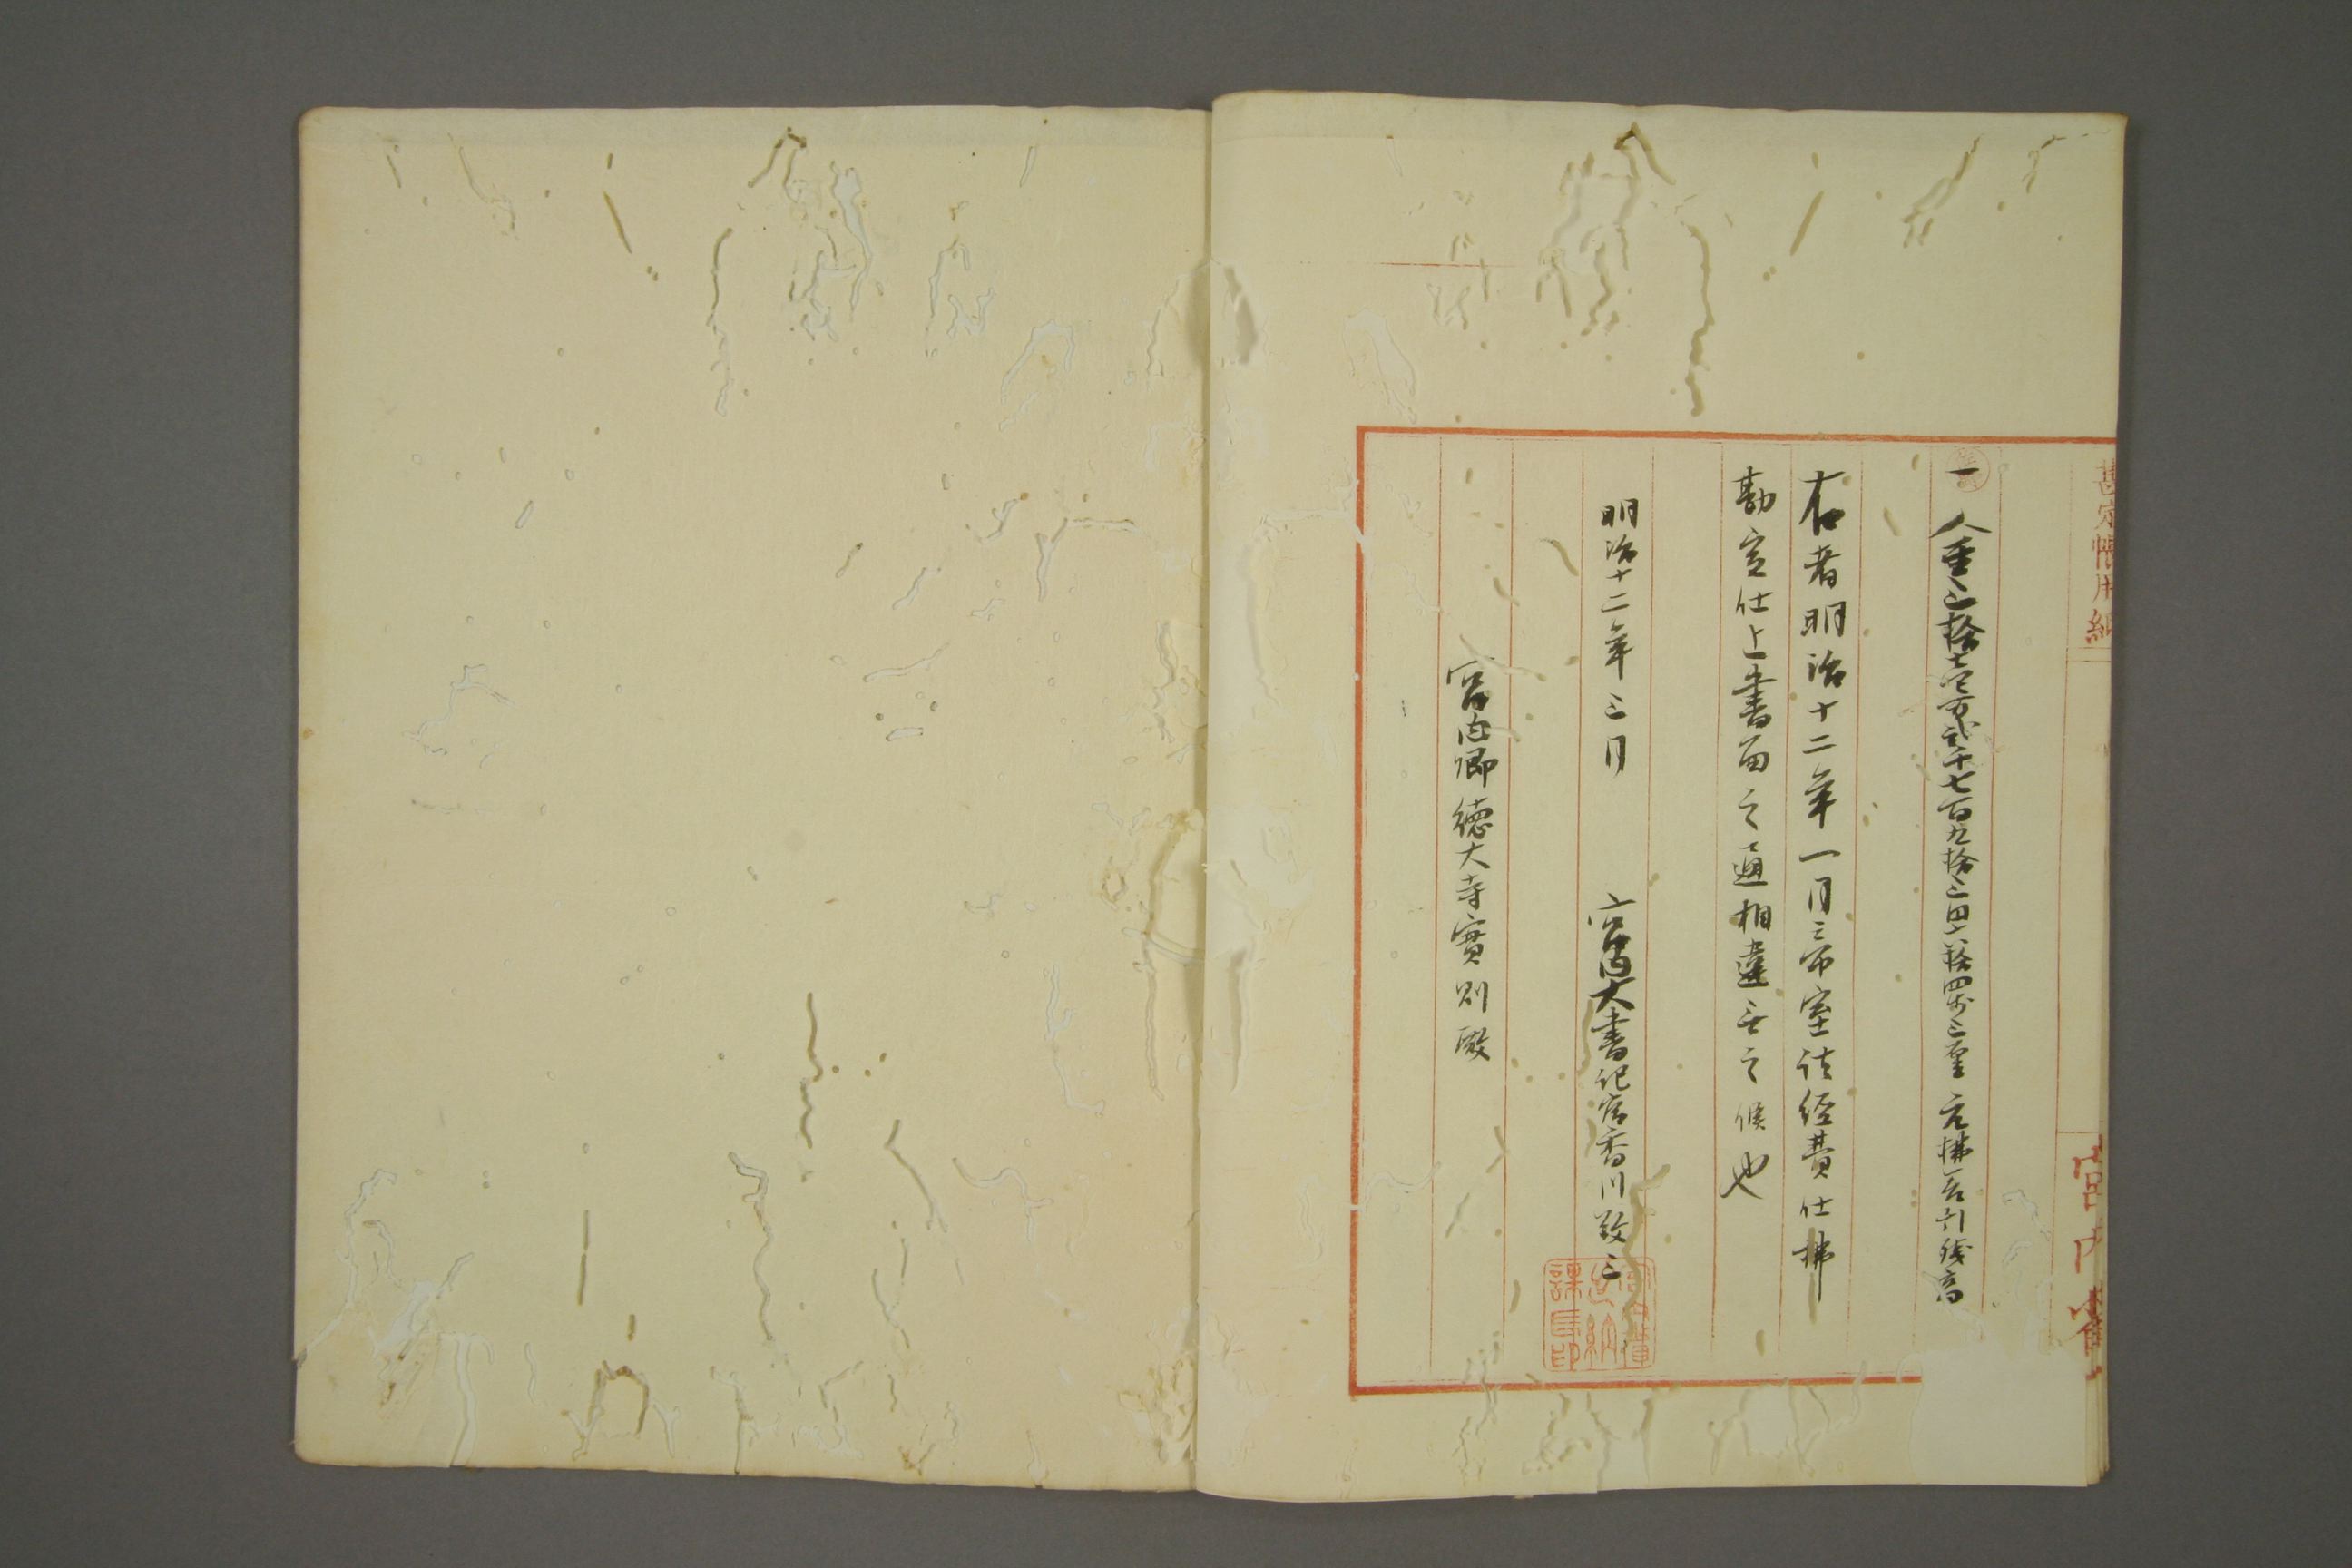 勘定帳用紙
宮内省
一 金三拾壱万弐千七百九拾三円六拾四銭三厘 元拂差引残高
右者明治十二年一月三帝室諸経費仕拂
勘定仕上書面之通相違無之候也
明治十二年三月
宮内大書記官香川敬三
宮内庫出納課長印
宮内卿徳大寺實則殿